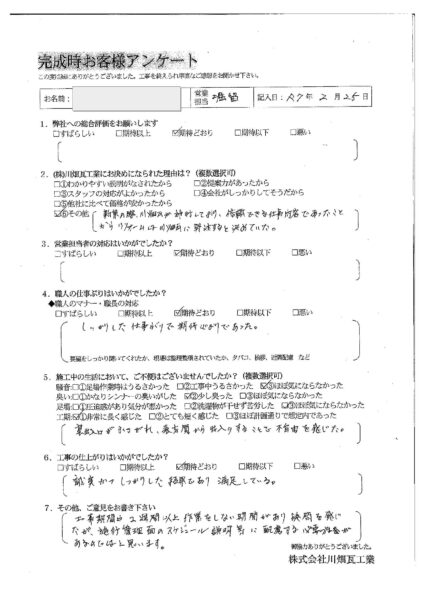 完成時お客様アンケート
この度は誠にありがとうございました。工事を終えられ率直なご感想をお聞かせ下さい。
お名前: 営業担当 記入日: R7年 2月25日
1. 弊社への総合評価をお願いします
□すばらしい □期待以上 ☑期待どおり □期待以下 □悪い
2. (株)川畑瓦工業にお決めになられた理由は?(複数選択可)
□①わかりやすい説明がなされたから □②提案力があったから
□③スタッフの対応がよかったから □④会社がしっかりしてそうだから
□⑤他社に比べて価格が安かったから
☑⑥その他 新築の際、川畑さんが
からリフォームは川畑さんに する と決めていた。
3. 営業担当者の対応はいかがでしたか?
□すばらしい □期待以上 ☑期待どおり □期待以下 □悪い
4. 職人の仕事ぶりはいかがでしたか?
◆職人のマナー・職長の対応
□すばらしい □期待以上 ☑期待どおり □期待以下 □悪い
しっかりした仕事がりで期待どおりであった。
要望をしっかり聞いてくれたか、現場は整理整頓されていたか、タバコ、挨拶、近隣配慮 など
5. 施工中の生活において、ご不便はございませんでしたか?(複数選択可)
騒音:□①足場作業時はうるさかった □②工事中うるさかった ☑③ほぼ気にならなかった
臭い:□①かなりシンナーの臭いがした ☑②少し臭った □③ほぼ気にならなかった
足場:□①圧迫感があり気分が悪かった □②洗濯物が干せず苦労した ☑③ほぼ気にならなかった
工期:☑①非常に長く感じた □②とても短く感じた □③ほぼ計画通りで想定内であった
がふさがれ、 から出入りすることで不自由を感じた。
6. 工事の仕上がりはいかがでしたか?
□すばらしい □期待以上 ☑期待どおり □期待以下 □悪い
しっかりした結果であり 満足している。
7. その他、ご意見をお書き下さい
工事期間は2週間以上作業をしない期間があり疑問を感じ
たが、施行管理面のスケジュール説明等に配慮する必要性が
あるのではと思います。
御協力ありがとうございました。
株式会社川畑瓦工業